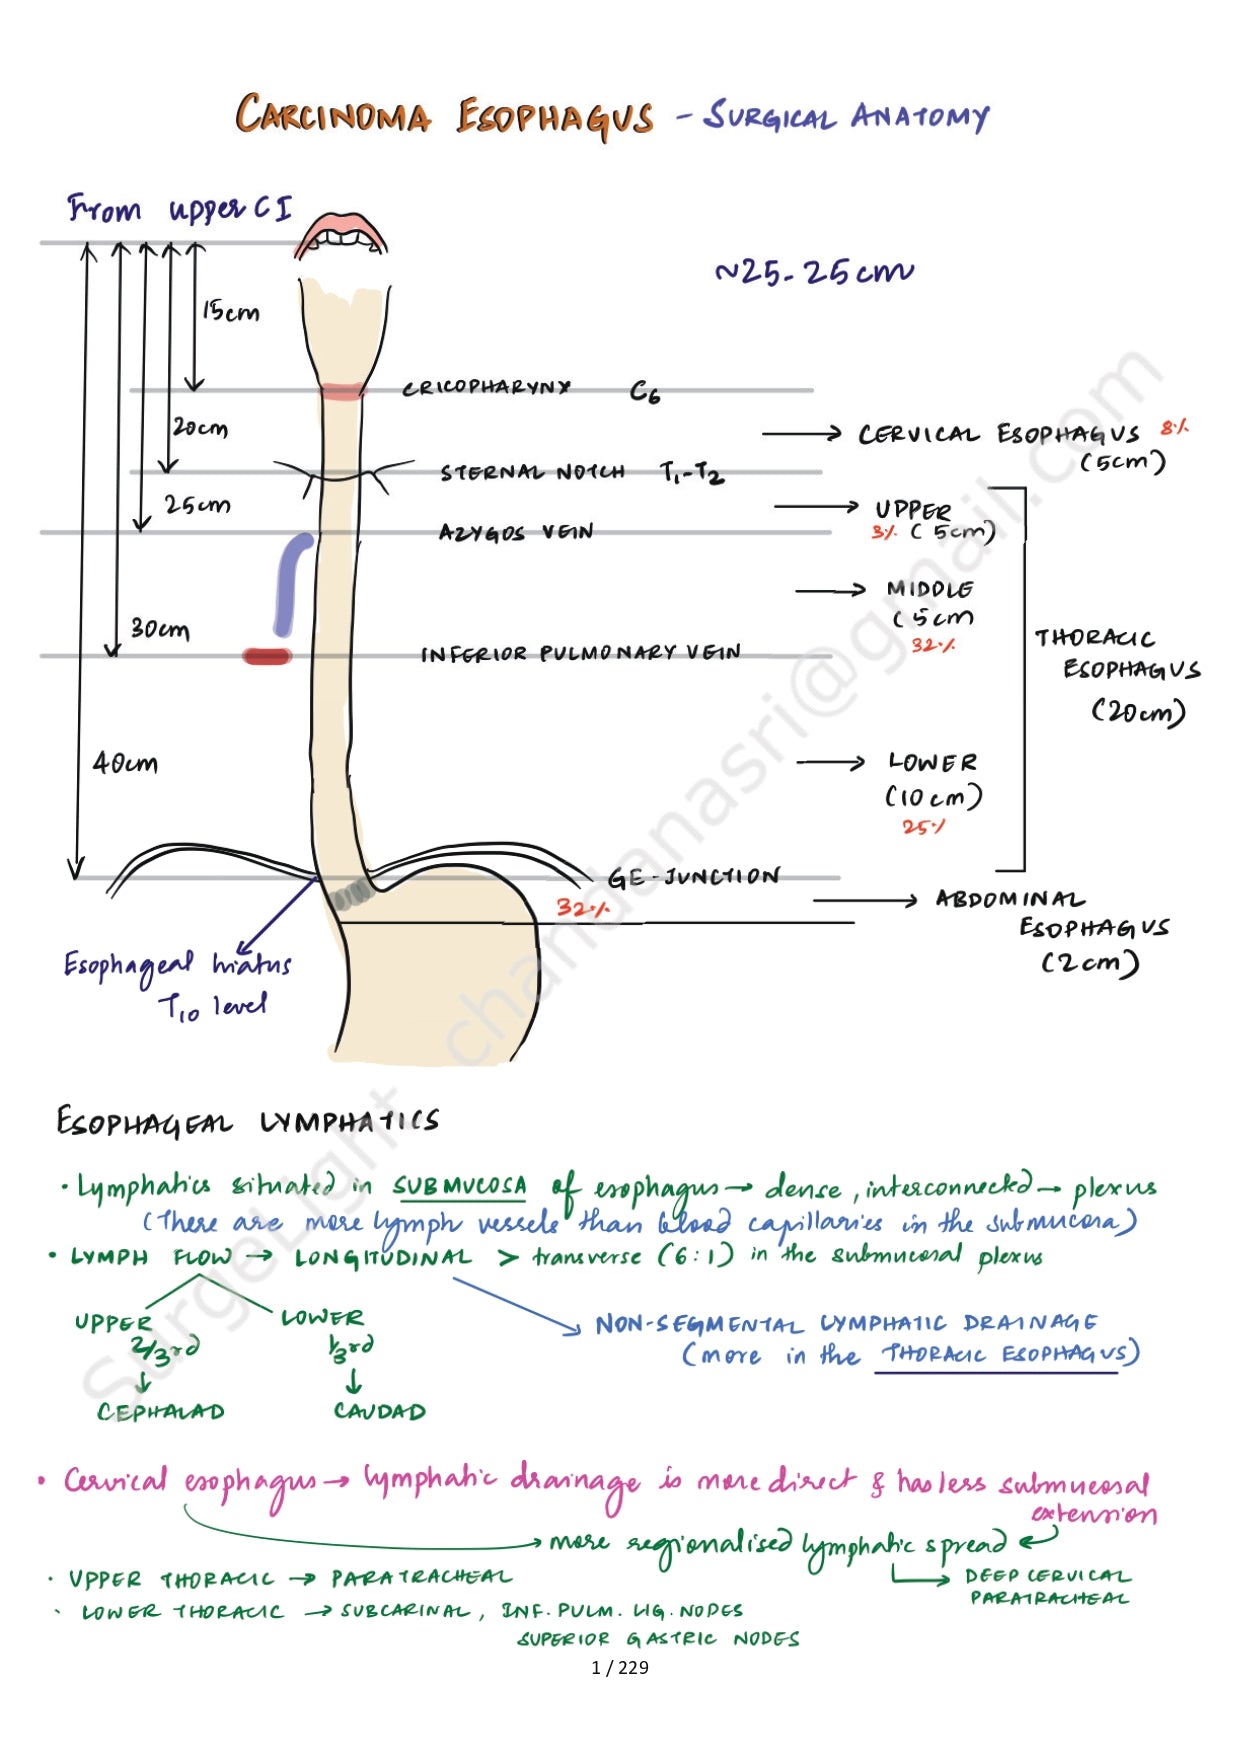 CARCINOMA ESOPHAGUS - SURGICAL ANATOMY
From upper CI
~25-25cm
15cm
CRICOPHARYNX C6
20cm
CERVICAL ESOPHAGUS 8%
(5cm)
STERNAL NOTCH T1-T2
25cm
UPPER
3% (5cm)
AZYGOS VEIN
MIDDLE
(5cm
32%
30cm
INFERIOR PULMONARY VEIN
THORACIC
ESOPHAGUS
(20cm)
40cm
LOWER
(10cm)
25%
GE-JUNCTION
32%
ABDOMINAL
ESOPHAGUS
(2cm)
Esophageal hiatus
T10 level
ESOPHAGEAL LYMPHATICS
• Lymphatics situated in SUBMUCOSA of esophagus → dense, interconnected → plexus
(There are more lymph vessels than blood capillaries in the submucosa)
• LYMPH FLOW → LONGITUDINAL > transverse (6:1) in the submucosal plexus
UPPER
2/3rd
↓
CEPHALAD
LOWER
1/3rd
↓
CAUDAD
NON-SEGMENTAL LYMPHATIC DRAINAGE
(more in the THORACIC ESOPHAGUS)
• Cervical esophagus → lymphatic drainage is more direct & has less submucosal
extension
more regionalised lymphatic spread
DEEP CERVICAL
PARATRACHEAL
• UPPER THORACIC → PARATRACHEAL
• LOWER THORACIC → SUBCARINAL, INF. PULM. LIG. NODES
SUPERIOR GASTRIC NODES
SurgeLight chandanasri@gmail.com
1 / 229